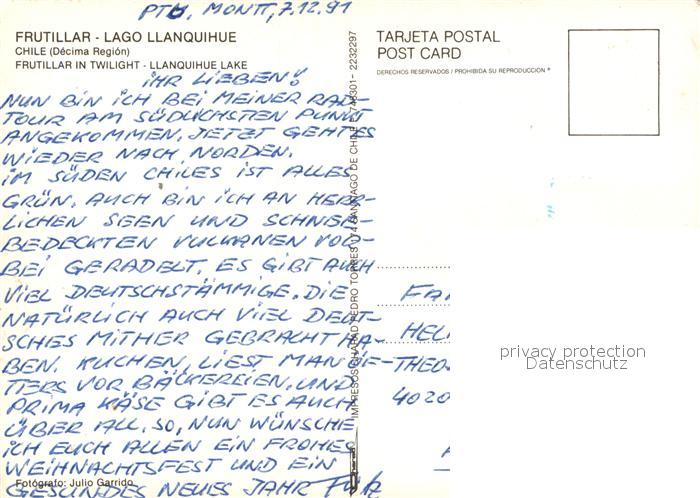 PTO, MONTT, 7.12.91
FRUTILLAR - LAGO LLANQUIHUE
CHILE (Décima Región)
FRUTILLAR IN TWILIGHT - LLANQUIHUE LAKE
IHR LIEBEN!
NUN BIN ICH BEI MEINER RAD-
TOUR AM SÜDLICHSTEN PUNKT
ANGEKOMMEN. JETZT GEHT ES
WIEDER NACH NORDEN.
IM SÜDEN CHILES IST ALLES
GRÜN. AUCH BIN ICH AN HERR-
LICHEN SEEN UND SCHNEE-
BEDECKTEN VULKANEN VOR-
BEI GERADELT. ES GIBT AUCH
VIEL DEUTSCHSTÄMMIGE. DIE
NATÜRLICH AUCH VIEL DEUT-
SCHES MITHER GEBRACHT HA-
BEN. KUCHEN, LIEST MAN DE-
TTERS VOR BÄCKEREIEN. UND
PRIMA KÄSE GIBT ES AUCH
ÜBER ALL. SO, NUN WÜNSCHE
ICH EUCH ALLEN EIN FROHES
WEIHNACHTSFEST UND EIN
GESUNDES NEUES JAHR
Fotógrafo: Julio Garrido
TARJETA POSTAL
POST CARD
DERECHOS RESERVADOS / PROHIBIDA SU REPRODUCCION
FA
HEL
THEO
4020
privacy protection
Datenschutz